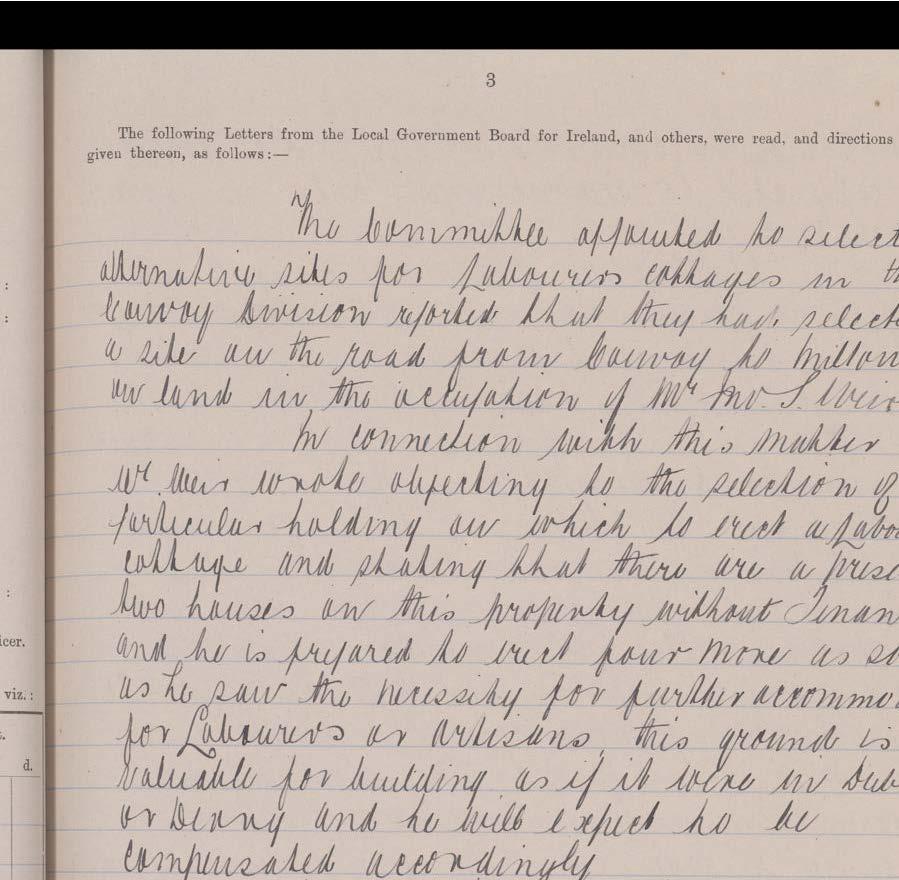 3
The following Letters from the Local Government Board for Ireland, and others, were read, and directions
given thereon, as follows:—
The Committee appointed to select
alternative sites for Labourers cottages in th
Conway Division reported that they had select
a site on the road from Conway to Millton
on land in the occupation of Mr Jno. S. Weir
In connection with this matter
Mr. Weir wrote objecting to the selection of
particular holding on which to erect a Labou
cottage and stating that there are a prese
two houses on this property without Tenan
and he is prepared to erect four more as so
as he saw the necessity for further accommo
for Labourers or Artisans, this ground is
valuable for building as if it were in Dub
or Derry and he will expect to be
compensated accordingly
:
:
:
icer.
viz.:
d.